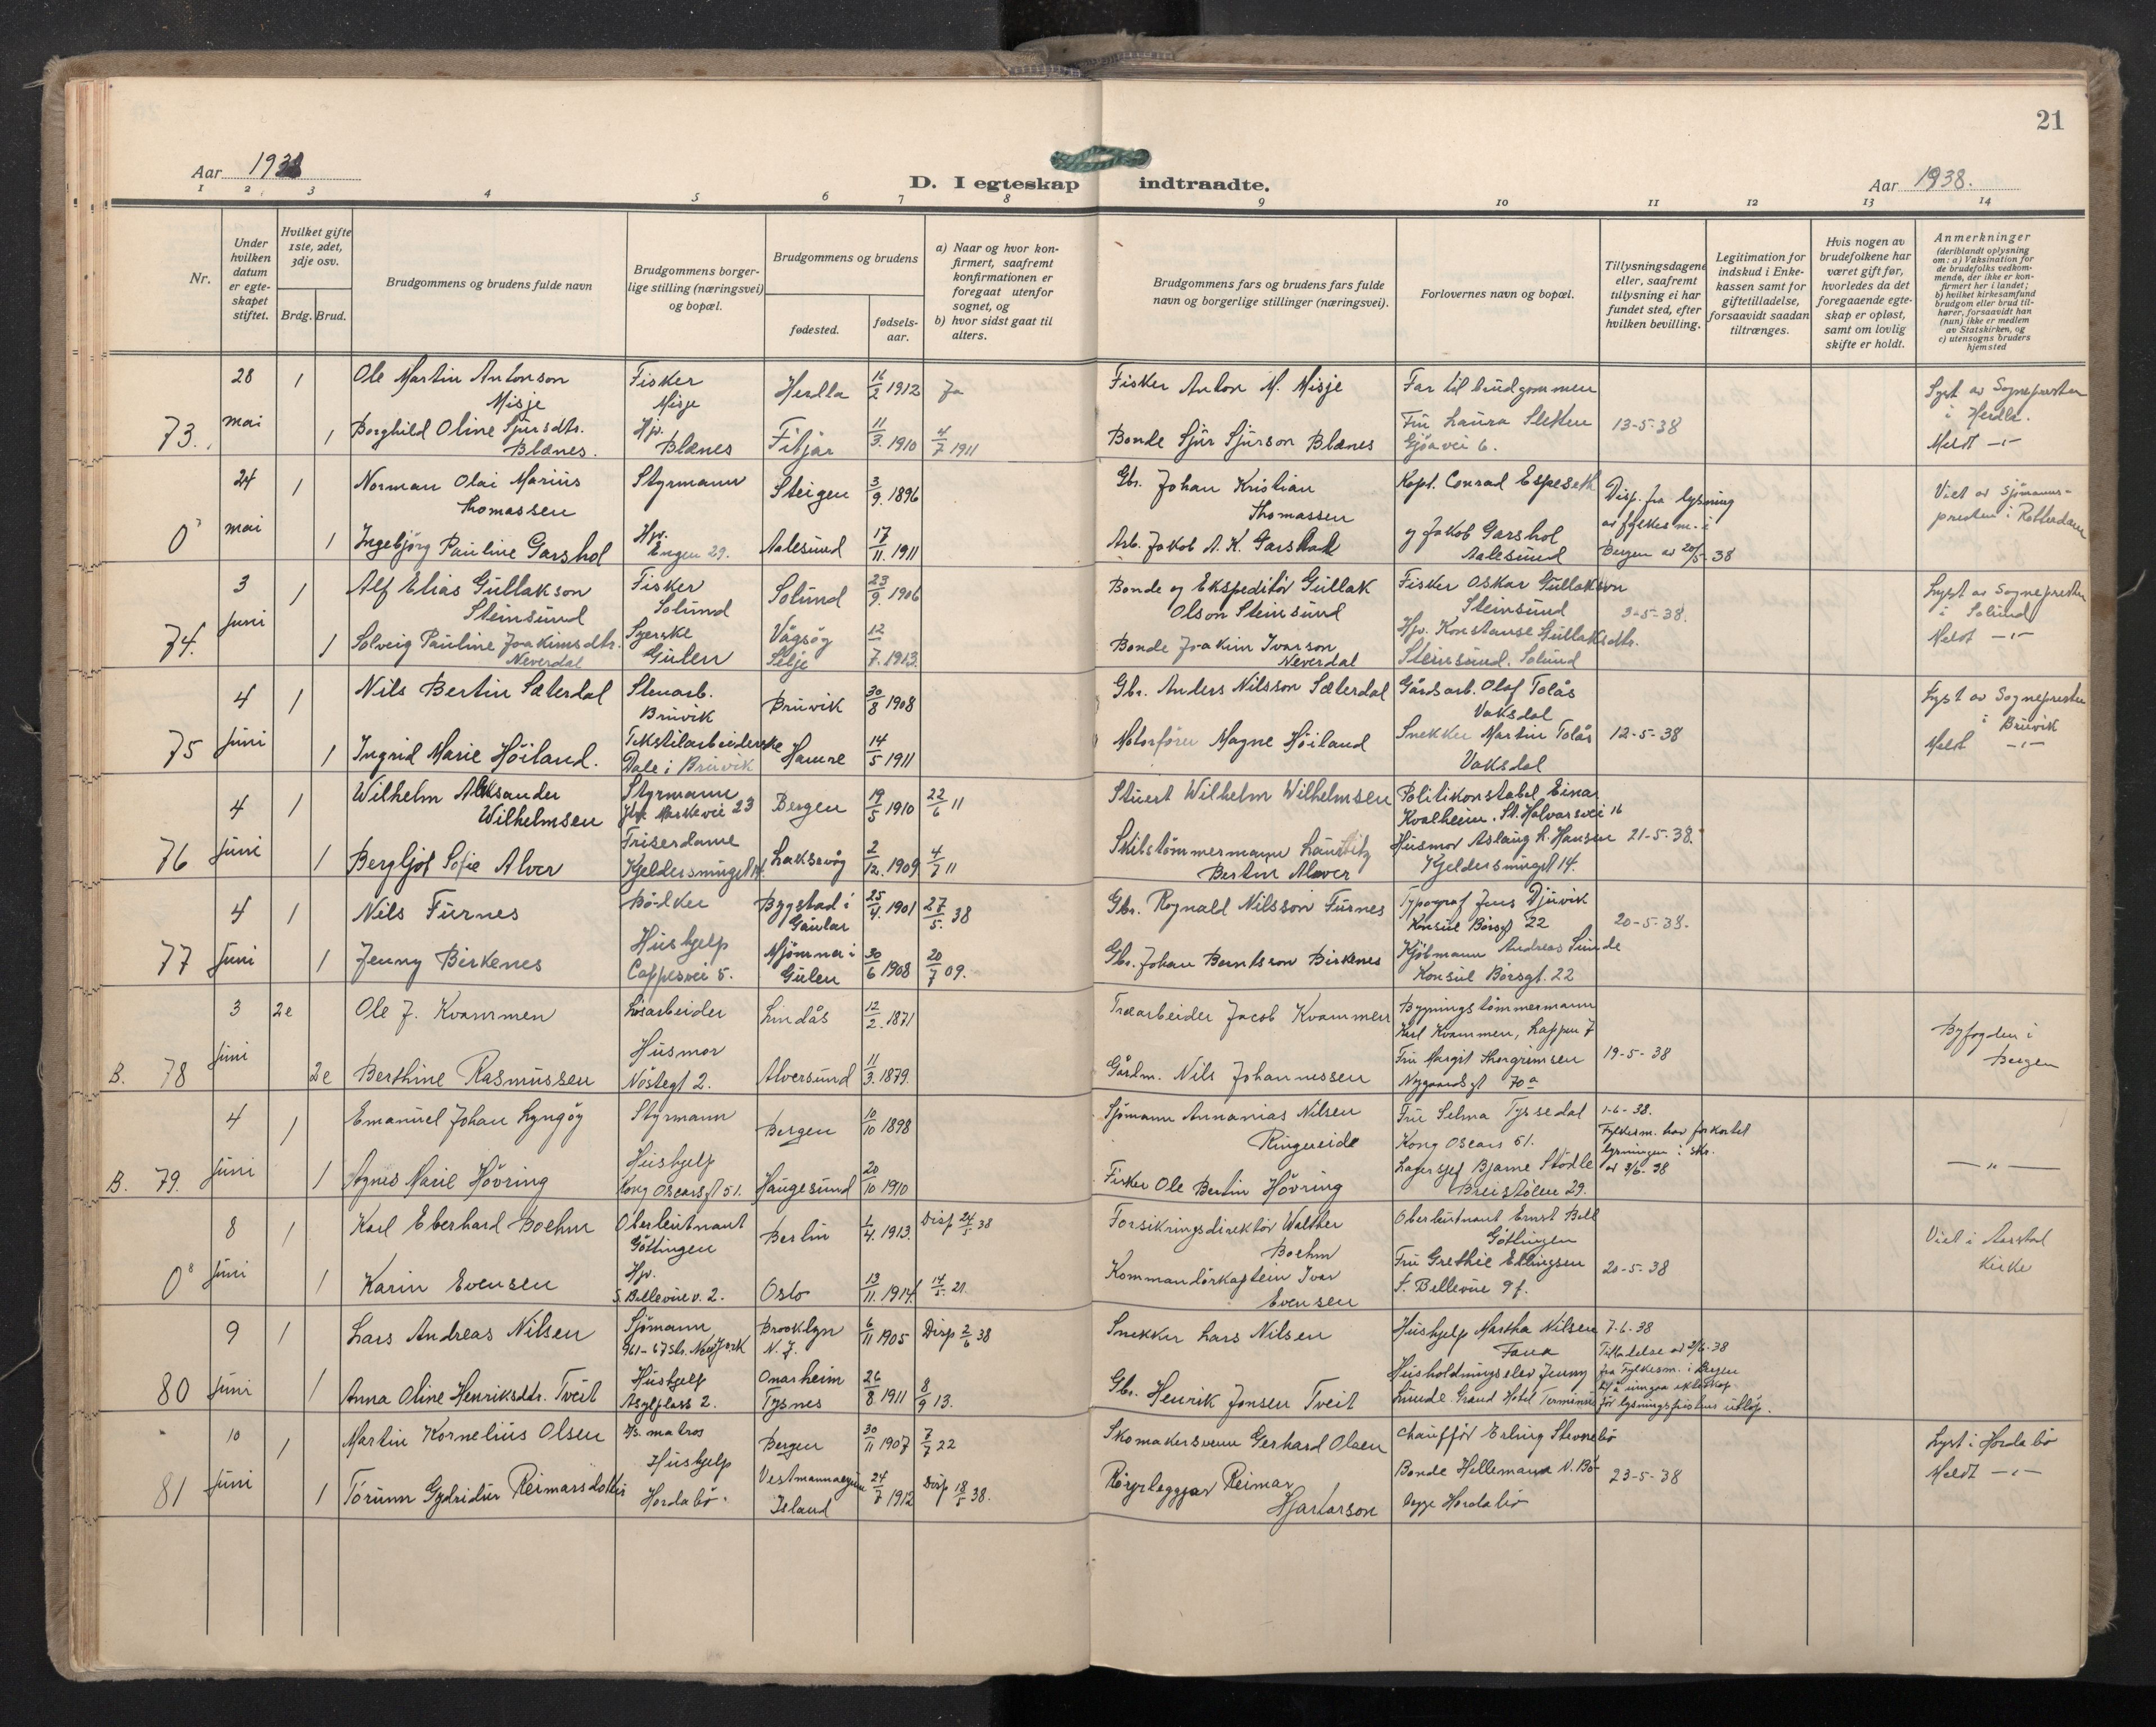 21
Aar 1938
D. I egteskap indtraadte.
Aar 1938.
1 2 3 4 5 6 7 8 9 10 11 12 13 14
Nr.
Under hvilken datum er egteskapet stiftet.
Hvilket gifte 1ste, 2det, 3dje osv.
Brdg. Brud.
Brudgommens og brudens fulde navn
Brudgommens borgerlige stilling (næringsvei) og bopæl.
Brudgommens og brudens
fødested.
fødselsaar.
a) Naar og hvor konfirmert, saafremt konfirmationen er foregaat utenfor sognet, og
b) hvor sidst gaat til alters.
Brudgommens fars og brudens fars fulde navn og borgerlige stillinger (næringsvei).
Forlovernes navn og bopæl.
Tillysningsdagene eller, saafremt tillysning ei har fundet sted, efter hvilken bevilling.
Legitimation for indskud i Enkekassen samt for giftetilladelse, forsaavidt saadan tiltrænges.
Hvis nogen av brudefolkene har været gift før, hvorledes da det foregaaende egteskap er opløst, samt om lovlig skifte er holdt.
Anmerkninger
(deriblandt oplysning om: a) Vaksination for de brudefolks vedkommende, der ikke er konfirmert her i landet; b) hvilket kirkesamfund brudgom eller brud tilhører, forsaavidt han (hun) ikke er medlem av Statskirken, og c) utensogns bruders hjemsted
28 1 Ole Martin Antonson Misje Fisker Misje Herdla 16/2 1912 Ja Fisker Anton M. Misje Far til brudgommen Lyst av Sognepresten i Herdla.
73. mai 1 Borghild Oline Sjursdtr. Blænes. Hjv. Blænes Fitjar 11/3. 1910 4/7 1911 Bonde Sjur Sjurson Blænes Fru Laura Sletten Gjøavei 6. 13-5-38 Meldt -"-
24 1 Norman Olai Marius Thomassen Styrmann Steigen 3/9. 1896 Gbr. Johan Kristian Thomassen Kapt. Conrad Espeseth Disp. fra lysning Viet av Sjömannspresten i Rotterdam
0 mai 1 Ingebjörg Pauline Garshol Hjv. Engen 29. Aalesund 17/11. 1911 Arb. Jakob A. K. Garshol og Jakob Garshol Aalesund av fylkesm. i Bergen av 20/5-38
3 1 Alf Elias Gullakson Steinsund Fisker Solund Solund 23/9. 1906 Bonde og Ekspeditör Gullak Olson Steinsund Fisker Oskar Gullakson Steinsund 3-5-38. Lyst av Sognepresten i Solund
74. juni 1 Solveig Pauline Joakimsdtr. Neverdal Syerske Gulen Vågsöy Selje 12/7. 1913. Bonde Joakim Ivarson Neverdal Hjv. Konstanse Gullaksdtr. Steinsund. Solund Meldt -"-
4 1 Nils Bertin Sæterdal Stenarb. Bruvik Bruvik 30/8 1908 Gbr. Anders Nilsson Sæterdal Gårdsarb. Olaf Tolås Vaksdal Lyst av Sognepresten i Bruvik
75 juni 1 Ingrid Marie Höiland. Tekstilarbeiderske Dale i Bruvik Hamre 14/5 1911 Motorförer Magne Höiland Snekker Martin Tolås Vaksdal 12-5-38 Meldt -"-
4 1 Wilhelm Aleksander Wilhelmsen Styrmann 23 Bergen 19/5 1910 22/6 11 Stuert Wilhelm Wilhelmsen Politikonstabel Einar Kvalheim. St. Halvarsvei 16
76 juni 1 Bergljot Sofie Alver Friserdame Kjeldersmuget 14. Laksevåg 2/12. 1909 4/7 11 Skibstömmermann Lauritz Bertin Alver Husmor Aslaug L. Hansen Kjeldersmuget 14. 21-5-38.
4 1 Nils Furnes Bödker Bygstad i Gaular 25/4. 1901 27/5. 38 Gbr. Rognald Nilsson Furnes Typograf Jens Djuvik Konsul Börsgt 22 20-5-38.
77 juni 1 Jenny Birkenes Hushjelp Cappesvei 5. Mjömna i Gulen 30/6 1908 20/7 09. Gbr. Johan Berntsson Birkenes Kjöbmann Andreas Sunde Konsul Börsgt. 22
3 2e Ole J. Kvammen Lösarbeider Lindås 12/2. 1871 Træarbeider Jacob Kvammen Bygningstömmermann Karl Kvammen, Lappen 7 Byfogden i Bergen
B. 78 juni 2e Berthine Rasmussen Husmor Nöstegt 2. Alversund 11/3. 1879. Gårdm. Nils Johannessen Fru Margit Thorgrimsen Nygaardsgt 70a 19-5-38
4 1 Emanuel Johan Lyngöy Styrmann Bergen 10/10 1898 Sjömann Annanias Nilsen Ringereide Fru Selma Tyssedal Kong Oscars 51. 1-6-38. Fylkesm. har forkortet
B. 79. juni 1 Agnes Marie Hövring Hushjelp Kong Oscarsgt 51. Haugesund 20/10 1910 Fisker Ole Bertin Hövring Lagersjef Bjarne Stödle Breistölen 29. lysningen i skr. av 3/6-38 -"-
8 1 Karl Eberhard Boehm Oberleutnant Göttingen Berlin 1/4. 1913. Disp 24/5 38 Forsikringsdirektör Walther Boehm Oberleutnant Ernst Bell Göttingen Viet i Aarstad kirke
0 juni 1 Karin Evensen Hjv. S. Bellevue v. 2. Oslo 13/11. 1914. 14/5. 29. Kommandörkaptein Ivar Evensen Fru Grethie Ellingsen S. Bellevue 9 f. 20-5-38
9 1 Lars Andreas Nilsen Sjömann 961-67 str. New York Brooklyn N.Y. 6/11 1905 Disp 2/6 38 Snekker Lars Nilsen Hushjelp Martha Nilsen Fana 7-6-38 Tilladelse av 2/6-38
80 juni 1 Anna Oline Henriksdtr. Tveit Hushjelp Asylplass 2. Onarheim Tysnes 26/8. 1911 8/9 13. Gbr. Henrik Jonsen Tveit Husholdningselev Jenny Lunde Grand Hotel Terminus fra Fylkesm. i Bergen til å inngaa ekteskap för lysningsfristens utlöp.
10 1 Martin Kornelius Olsen matros Bergen 30/11 1907 7/7 22 Skomakersvenn Gerhard Olsen Chaufför Erling Storebö Lyst i Hordabö
81 juni 1 Torunn Gydridur Reimarsdottir Hushjelp Hordabö. Vestmannaeyjar Island 24/7 1912 Disp 18/5 38. Rörleggjar Reimar Hjartarson Bonde Hillemann N. Bö begge Hordabö 23-5-38 Meldt -"-